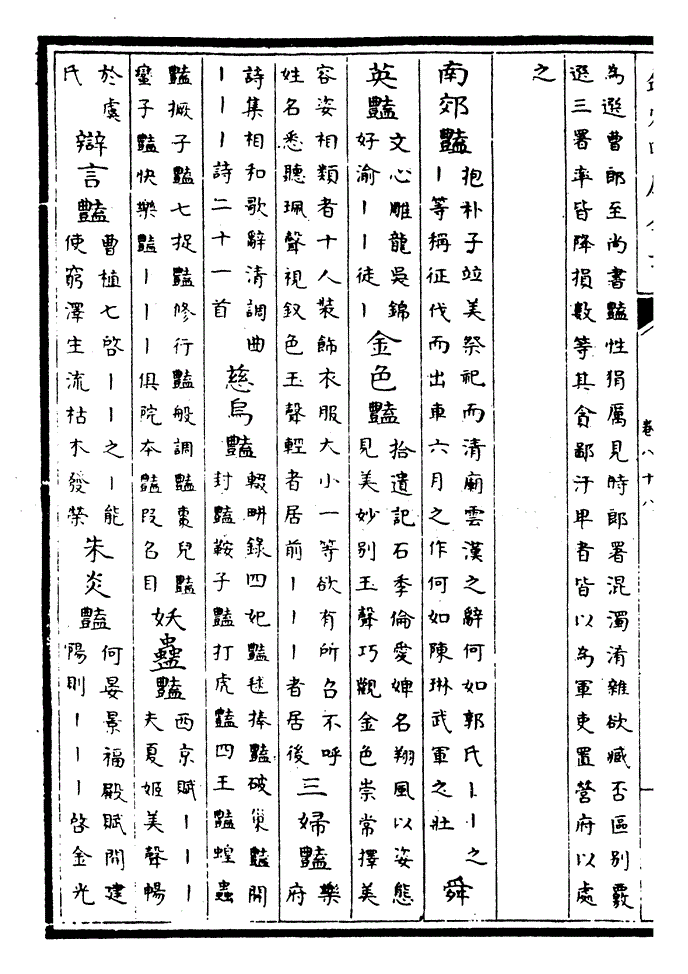 卷八十八
為選曹郎至尚書豔性狷厲見時郎署混濁淆雜欲臧否區別覈
選三署率皆降損數等其貪鄙汙卑者皆以為軍吏置營府以處
之
南郊豔
抱朴子竝美祭祀而清廟雲漢之辭何如郭氏｜｜之
｜等稱征伐而出車六月之作何如陳琳武軍之壯
舜
英豔
文心雕龍吳錦
好渝｜｜徒｜
金色豔
拾遺記石季倫愛婢名翔風以姿態
見美妙別玉聲巧觀金色崇常擇美
容姿相類者十人裝飾衣服大小一等欲有所召不呼
姓名悉聽珮聲視釵色玉聲輕者居前｜｜｜者居後
三婦豔
樂
府
詩集相和歌辭清調曲
｜｜｜詩二十一首
慈烏豔
輟畊錄四妃豔毬捧豔破巢豔開
封豔鞍子豔打虎豔四王豔蝗蟲
豔撅子豔七捉豔修行豔般調豔棗兒豔
蠻子豔快樂豔｜｜｜俱院本豔段名目
妖蠱豔
西京賦｜｜｜
夫夏姬美聲暢
於虞
氏
辯言豔
曹植七啓｜｜之｜能
使窮澤生流枯木發榮
朱炎豔
何晏景福殿賦開建
陽則｜｜｜啓金光